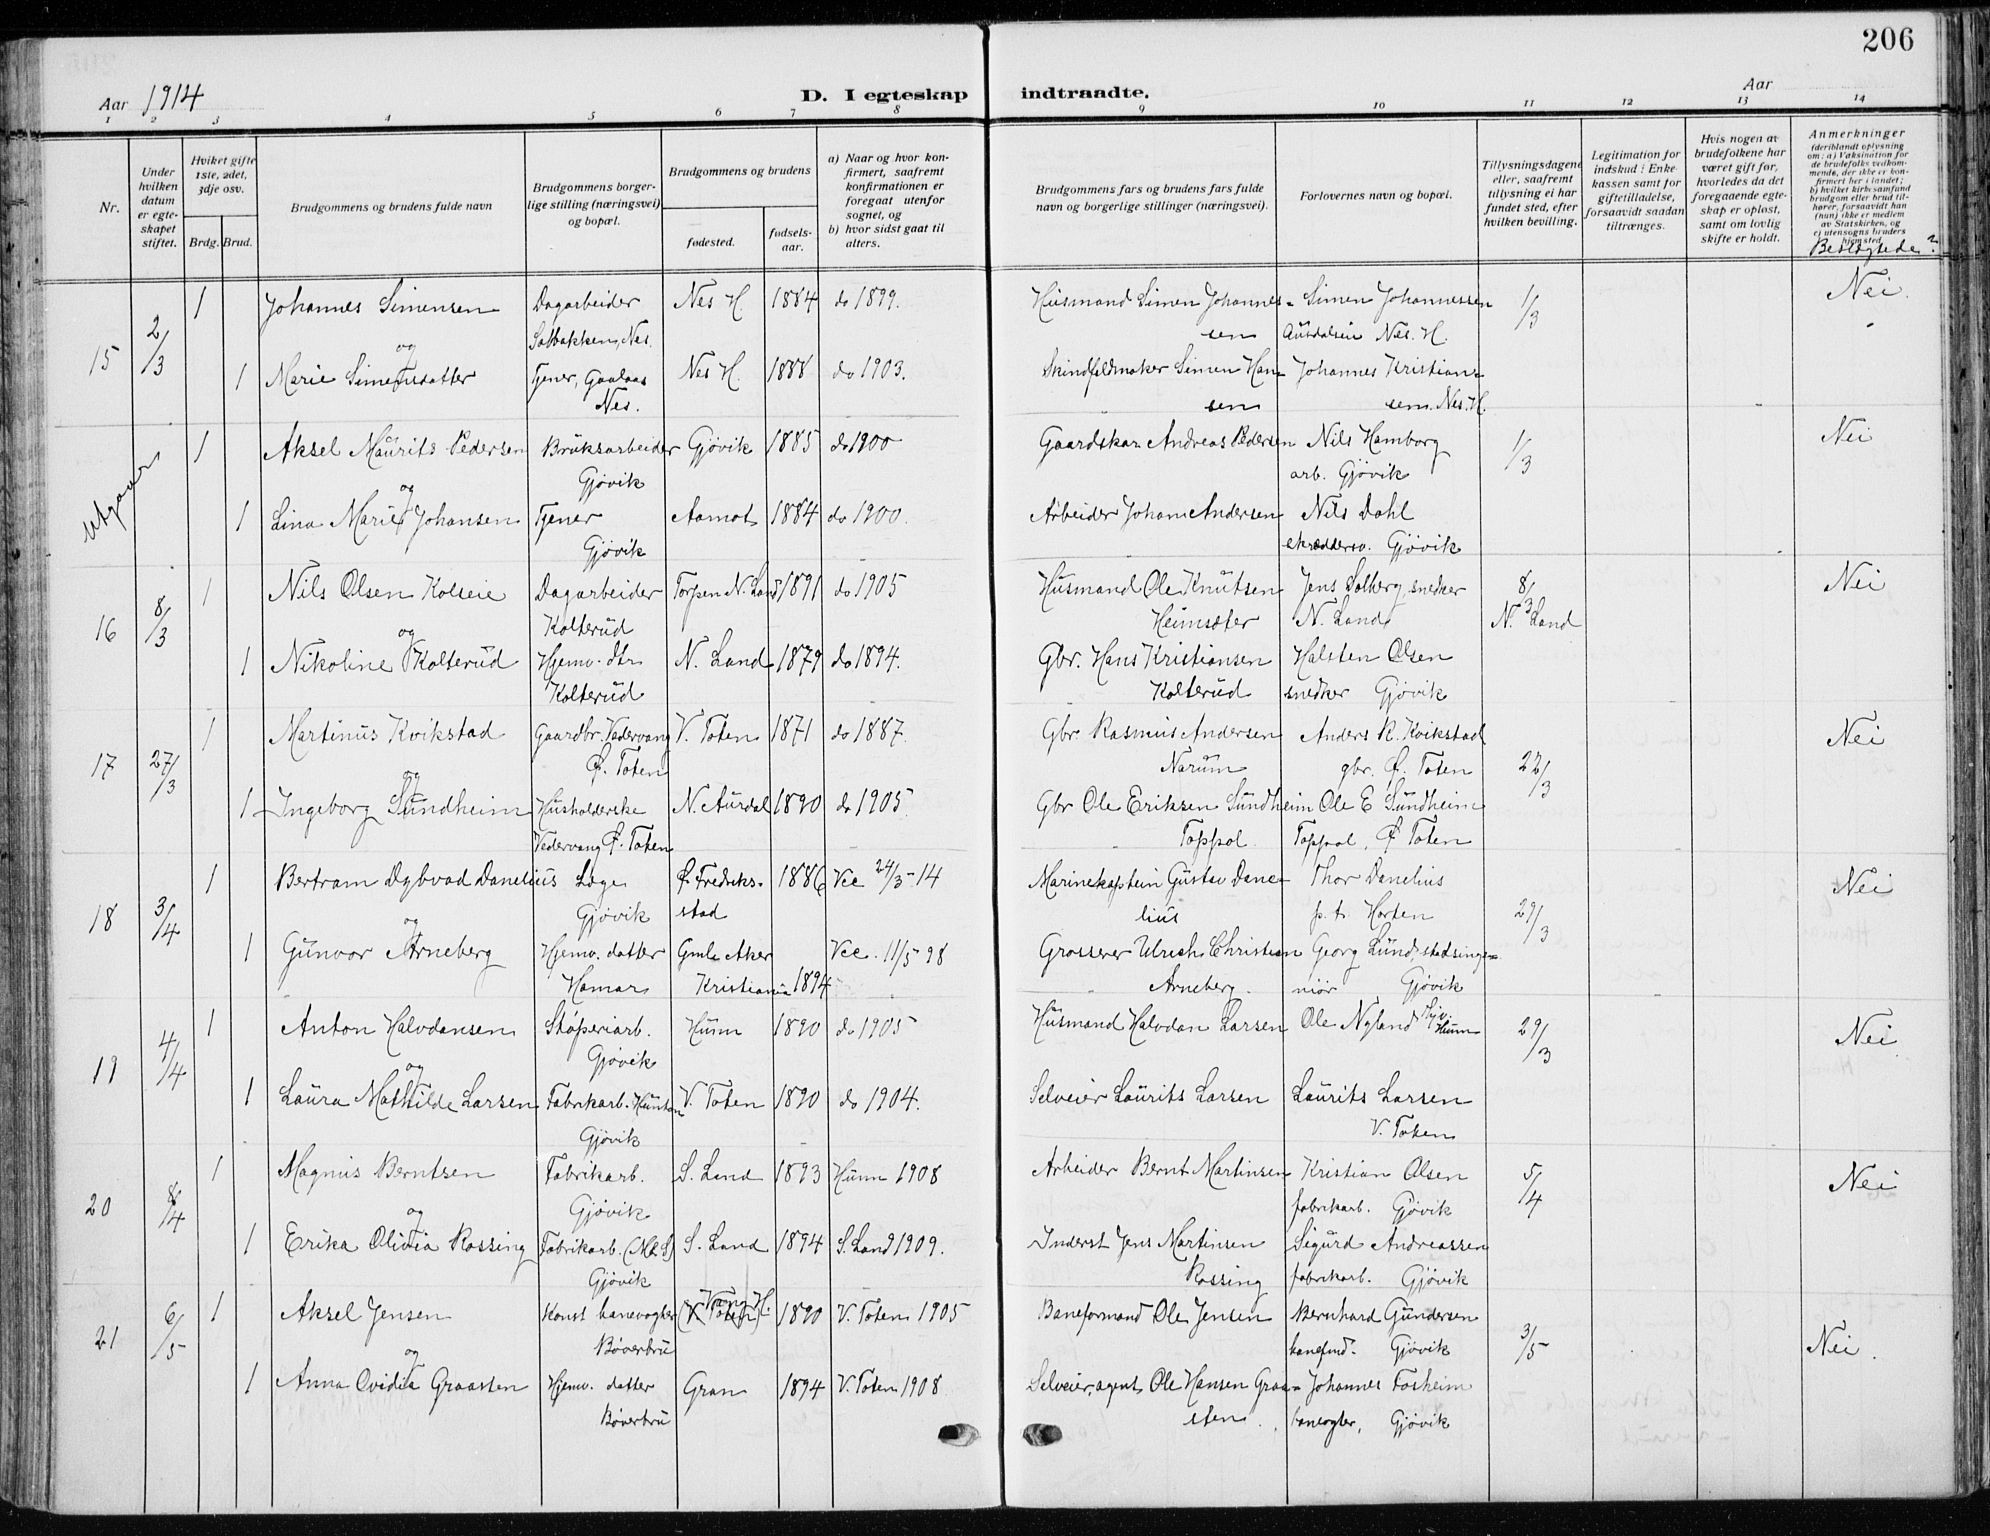 206
Aar 1914
D. I egteskap indtraadte.
Aar
1 2 3 4 5 6 7 8 9 10 11 12 13 14
Nr.
Under hvilken datum er egteskapet stiftet.
Hvilket gifte 1ste, 2det, 3dje osv.
Brdg. Brud.
Brudgommens og brudens fulde navn
Brudgommens borgerlige stilling (næringsvei) og bopæl.
Brudgommens og brudens
fødested.
fødselsaar.
a) Naar og hvor konfirmert, saafremt konfirmationen er foregaat utenfor sognet, og
b) hvor sidst gaat til alters.
Brudgommens fars og brudens fars fulde navn og borgerlige stillinger (næringsvei).
Forlovernes navn og bopæl.
Tillysningsdagene eller, saafremt tillysning ei har fundet sted, efter hvilken bevilling.
Legitimation for indskud i Enkekassen samt for giftetilladelse, forsaavidt saadan tiltrænges.
Hvis nogen av brudefolkene har været gift før, hvorledes da det foregaaende egteskap er opløst, samt om lovlig skifte er holdt.
Anmerkninger (deriblandt oplysning om: a) Vaksination for de brudefolks vedkommende, der ikke er konfirmert her i landet; b) hvilket kirkesamfund brudgom eller brud tilhører, forsaavidt han (hun) ikke er medlem av Statskirken, og c) utensogns bruders hjemsted
Beslegtede?
15 2/3 1 Johannes Simensen Dagarbeider Nes H. 1884 do 1899. Husmand Simen Johannes- Simen Johannessen 1/3 Nei.
og Nes. sen Nes. H.
1 Marie Simensdatter Tjener, Gaalaas Nes H. 1888 do 1903. Skindfeldmaker Simen Han- Johannes Kristian-
Nes. sen sen. Nes. H.
Utgaar 1 Aksel Maurits Pedersen Bruksarbeider Gjøvik 1885 do 1900 Gaardskar Andreas Pedersen Nils Hamborg 1/3 Nei
og Gjøvik arb. Gjøvik
1 Lina Marie Johansen Tjener Aamot 1884 do 1900. Arbeider Johan Andersen Nils Dahl
Gjøvik skræddersv. Gjøvik
16 8/3 1 Nils Olsen Kolseie Dagarbeider Torpen N. Land 1891 do 1905 Husmand Ole Knutsen Jens Solberg, snedker 8/3 Nei
og Kolterud Heimsæter N. Land N. Land
1 Nikoline Kolterud Hjemv. dtr N. Land 1879 do 1894. Gbr. Hans Kristiansen Halsten Olsen
Kolterud Kolterud snedker Gjøvik
17 27/3 1 Martinus Kvikstad Gaardbr. Vedervang V. Toten 1871 do 1887. Gbr. Rasmus Andersen Anders R. Kvikstad 22/3 Nei
og Ø. Toten Narum gbr. Ø. Toten
1 Ingeborg Sundheim Husholderske N. Aurdal 1890 do 1905. Gbr Ole Eriksen Sundheim Ole E Sundheim
Vedervang Ø. Toten Toppol. Toppol, Ø Toten
18 3/4 1 Bertram Dybvad Danelius Læge Ø. Fredrik- 1886 Vcc 24/3-14 Marinekaptein Gustav Dane- Thor Danelius 29/3 Nei
og Gjøvik stad lius p. t. Horten
1 Gunvor Arneberg Hjemv. datter Gmle Aker Vcc. 11/5 98 Grosserer Ulrich Christian Georg Lund, stadsinge-
Hamar Kristiania 1894 Arneberg. niør Gjøvik
19 4/4 1 Anton Halvdansen Støperiarb. Hunn 1890 do 1905 Husmand Halvdan Larsen Ole Nyland Hunn 29/3 Nei
og Gjøvik
1 Laura Mathilde Larsen Fabrikarb. Hunton V. Toten 1890 do 1904. Selveier Laurits Larsen Laurits Larsen
Gjøvik V. Toten
20 8/4 1 Magnus Berntsen Fabrikarb. S. Land 1893 Hunn 1908 Arbeider Bernt Martinsen Kristian Olsen 5/4 Nei
og Gjøvik fabrikarb. Gjøvik
1 Erika Olivia Rossing Fabrikarb. S. Land 1894 S. Land 1909. Inderst Jens Martinsen Sigurd Andreassen
Gjøvik Rossing fabrikarb. Gjøvik
21 6/5 1 Aksel Jensen Konst banevogter (V. Toten) Vang H. 1890 V. Toten 1905 Baneformand Ole Jensen Bernhard Gundersen 3/5 Nei.
og Bøverbru banefmd. Gjøvik
1 Anna Ovidia Graasten Hjemv. datter Gran 1894 V. Toten 1908 Selveier, agent Ole Hansen Graa- Johannes Fosheim
Bøverbru sten. banevogter, Gjøvik